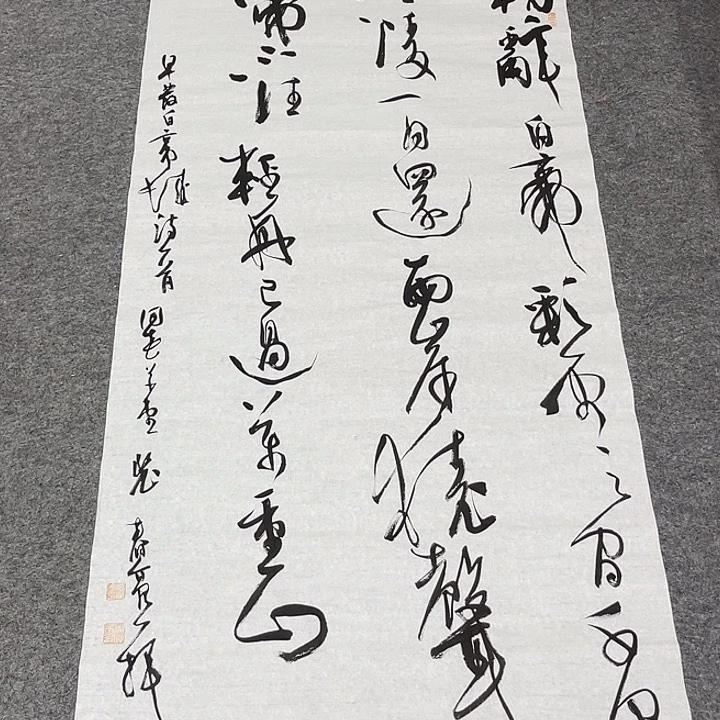 朝辭白帝彩雲間千里
江陵一日還兩岸猿聲
啼不住輕舟已過萬重山
早發白帝城詩一首